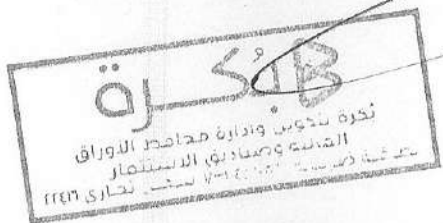 بُكرة
بُكرة لتكوين وإدارة محافظ الأوراق
المالية وصناديق الاستثمار
سجل تجارى ٢٢٤١٦